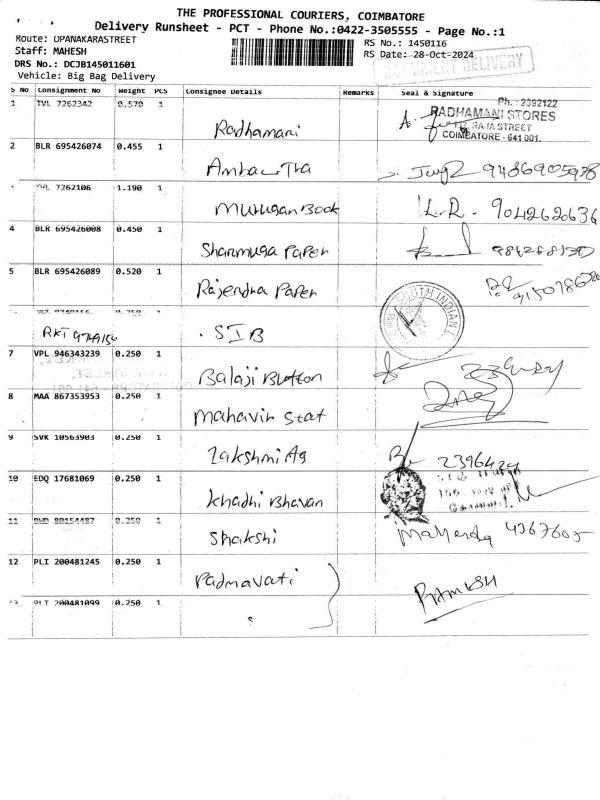 THE PROFESSIONAL COURIERS, COIMBATORE
Delivery Runsheet - PCT - Phone No.:0422-3505555 - Page No.:1
Route: OPANAKARASTREET
RS No.: 1450116
Staff: MAHESH
RS Date: 28-Oct-2024
DRS No.: DCJB145011601
Vehicle: Big Bag Delivery
DELIVERY
S No Consignment No Weight PCS Consignee Details Remarks Seal & Signature
1 TVL 7262342 0.570 1 Radhamani
Ph.: 2392122
RADHAMANI STORES
RAJA STREET
COIMBATORE - 641 001.
2 BLR 695426074 0.455 1
7262106 1.190 1 Murugan Book L.R. 904262636
4 BLR 695426008 0.450 1 Shanmuga Paper
5 BLR 695426089 0.520 1 Rajendra Paper
SOUTH INDIAN
. SIB
7 VPL 946343239 0.250 1 Balaji Button
8 MAA 867353953 0.250 1 Mahavir Stat
9 SVK 10563903 0.250 1 Lakshmi Ag
10 EDQ 17681069 0.250 1 Khadhi Bhavan
11 80154487 0.250 1 Shakshi
12 PLI 200481245 0.250 1 Padmavati
200481099 0.250 1
RAMESH